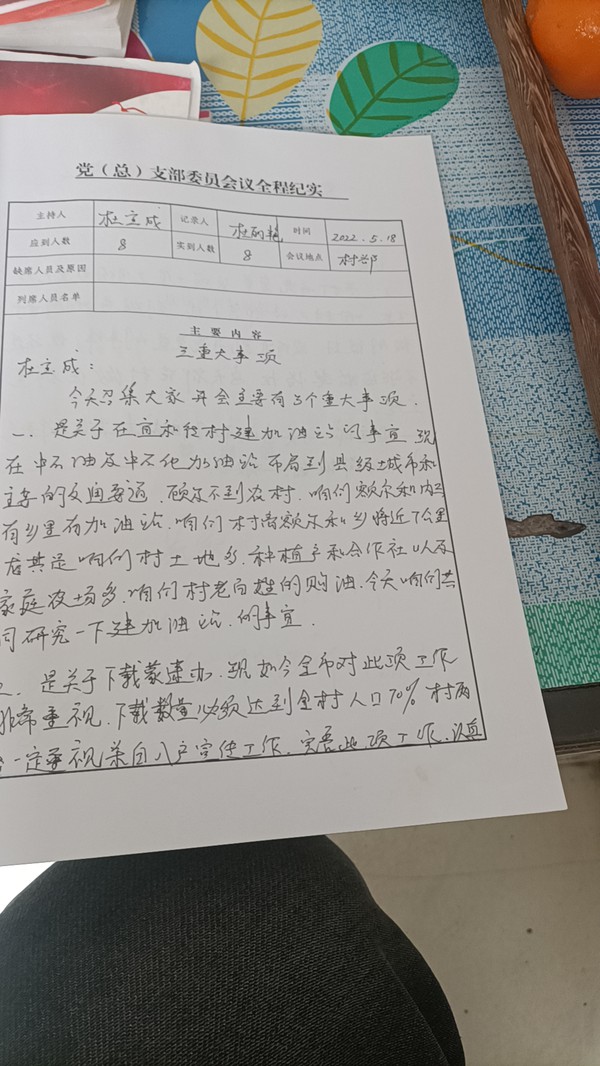 党（总）支部委员会议全程纪实
主持人 杜立成 记录人 杜丽艳 时间 2022.5.18
应到人数 8 实到人数 8 会议地点 村部
缺席人员及原因
列席人员名单
主要内容
三重大事项
杜立成：
今天召集大家开会主要有3个重大事项.
一、是关于在宜和村建加油站的事宜 现
在中石油及中石化加油站布局到县级城市和
主要的交通要道、顾尔不到农村、咱们额尔和内
有乡里有加油站、咱们村离额尔和乡将近7公里
尤其是咱们村土地多、种植户和合作社以及
家庭农场多、咱们村老百姓的购油、今天咱们共
同研究一下建加油站、的事宜.
是关于下载蒙速办、现如今全市对此项工作
非常重视、下载数量必须达到全村人口70% 村两
一定重视亲自入户宣传工作、完善此项工作、认真